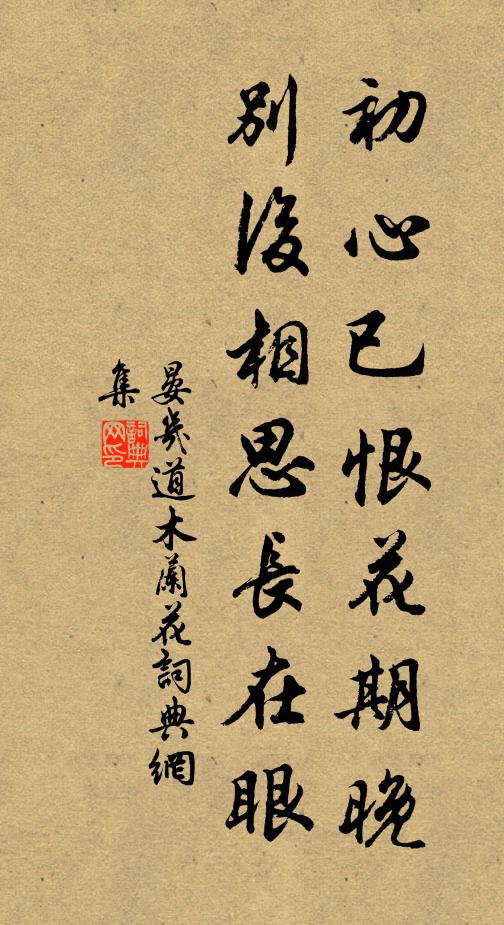 初心已恨花期晚
別後相思長在眼
晏幾道木蘭花詞典網
集
詞典網印